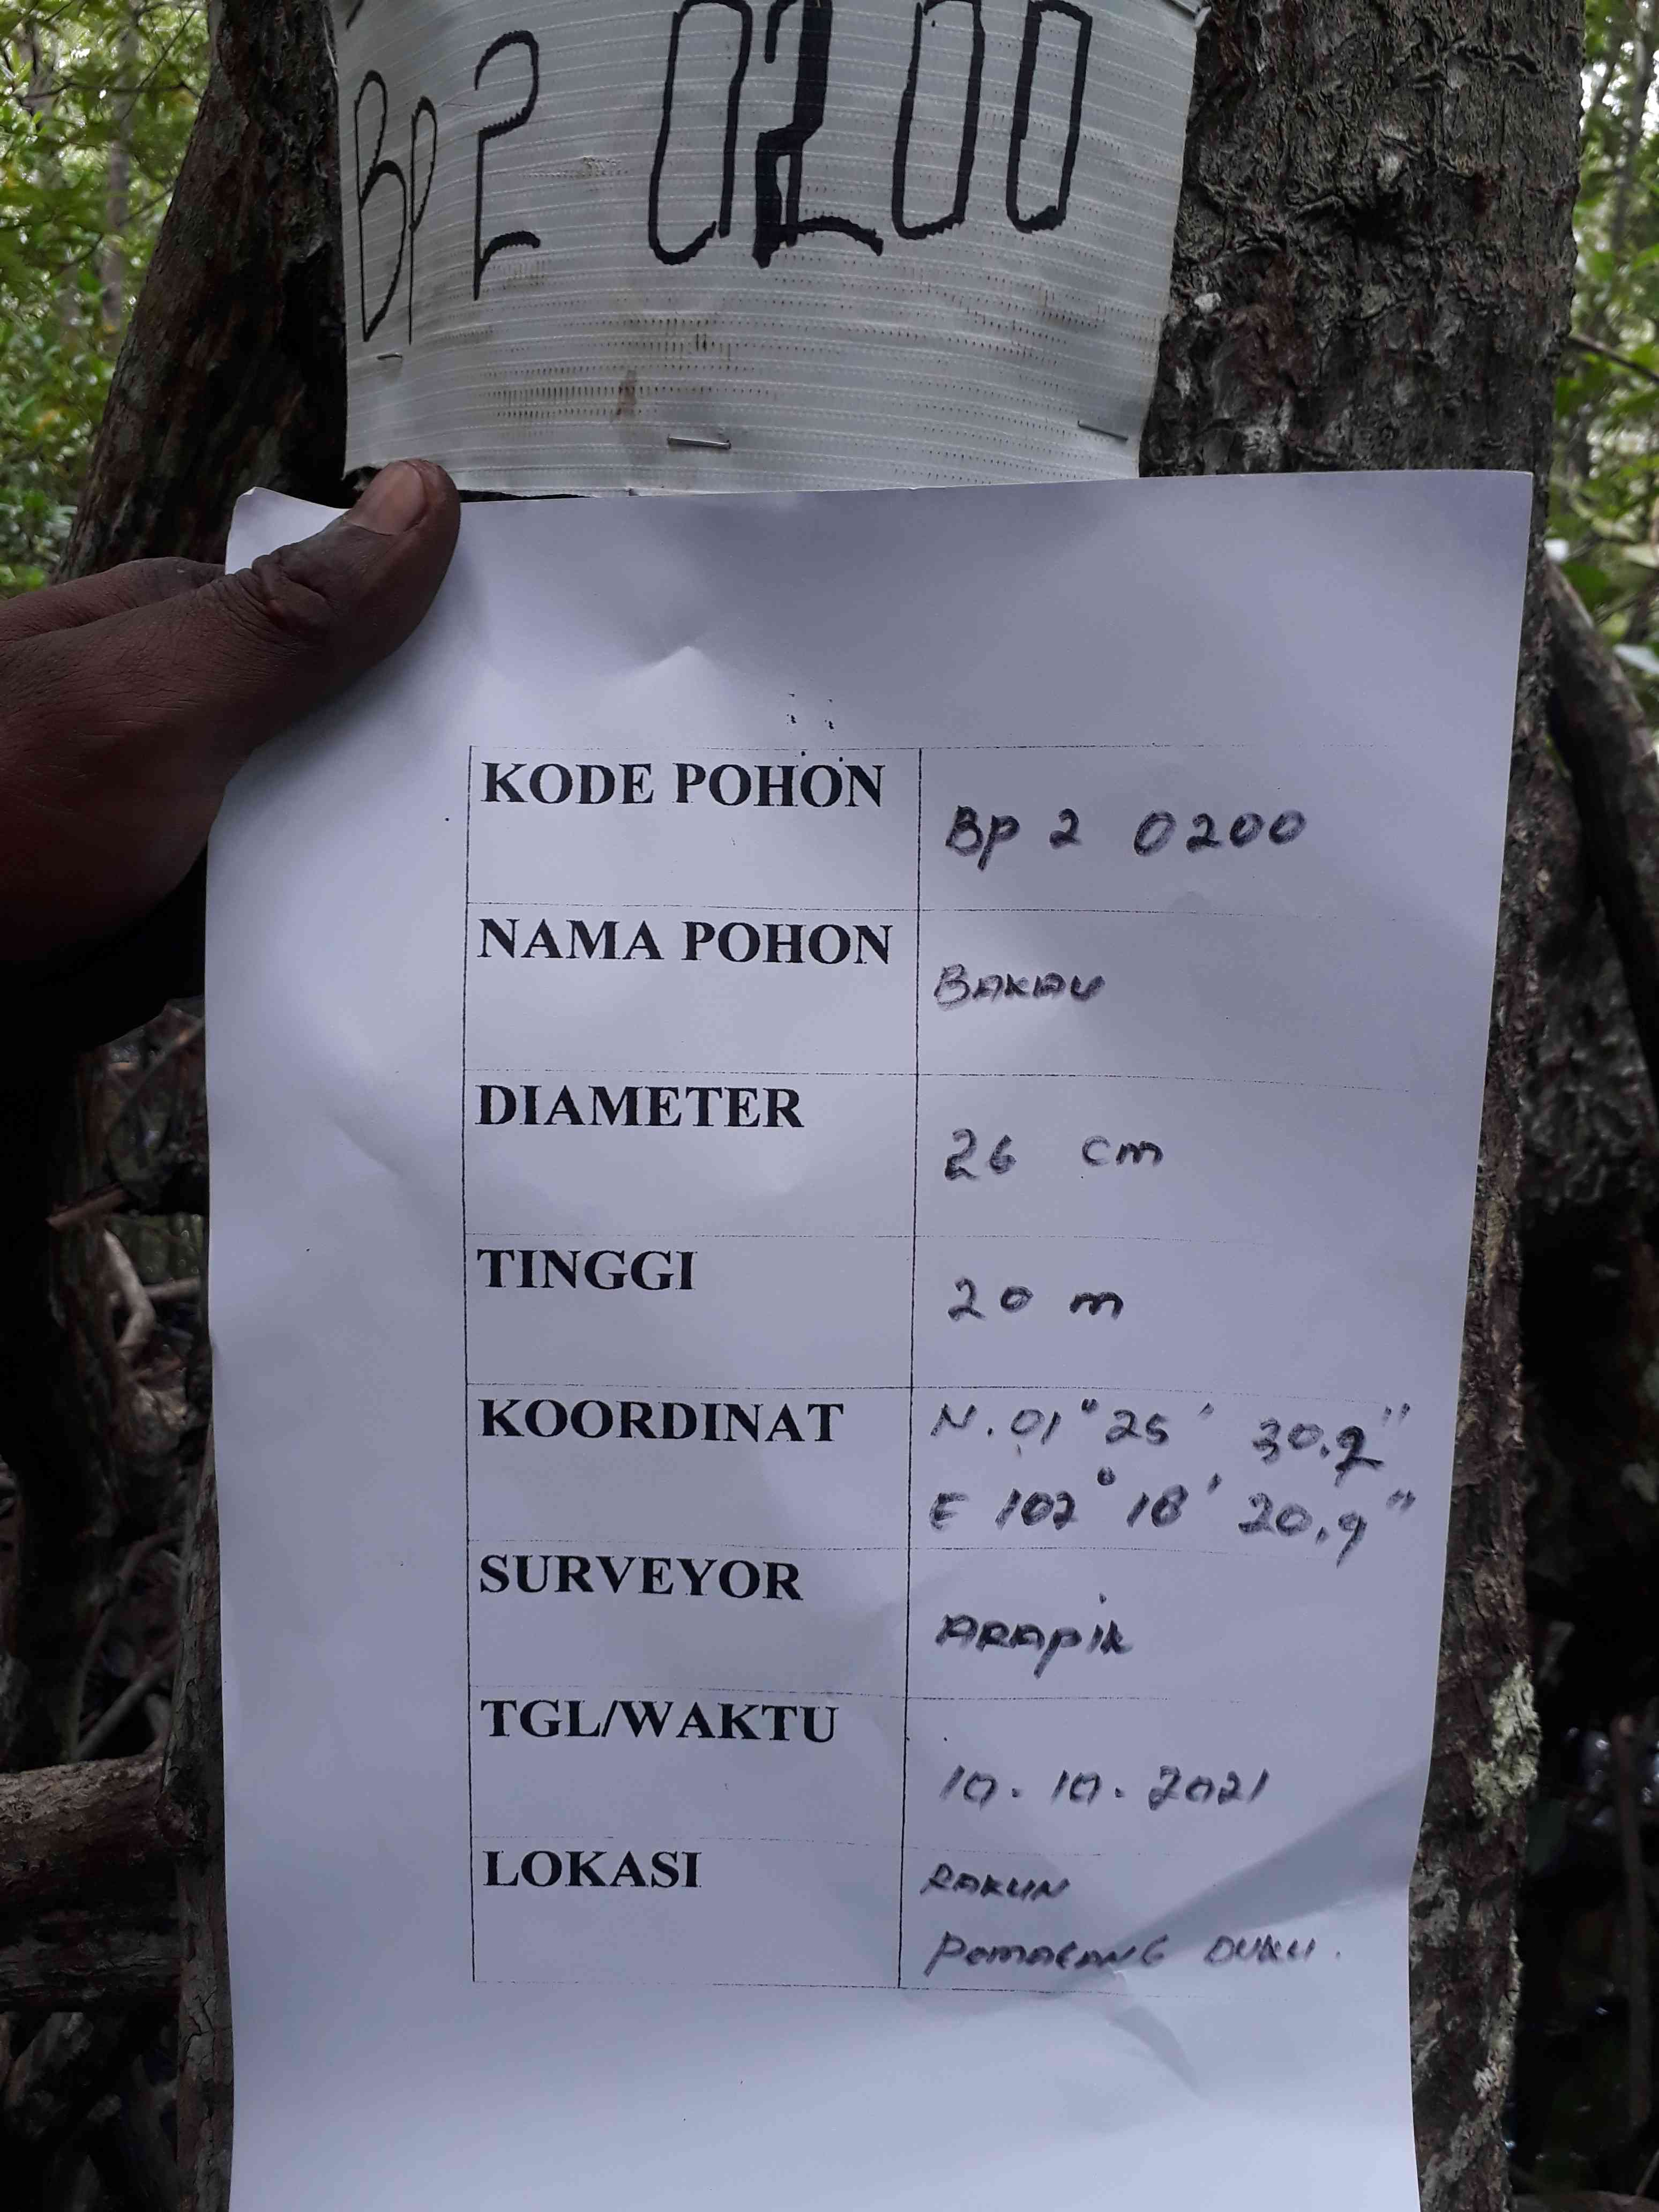 BP 2 0200
KODE POHON
BP 2 0200
NAMA POHON
BAKAU
DIAMETER
26 cm
TINGGI
20 m
KOORDINAT
N. 01° 25' 30.2"
E 102° 18' 20.9"
SURVEYOR
ARAPIK
TGL/WAKTU
10. 10. 2021
LOKASI
RAKUN
DUKU.